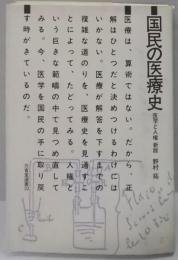 国民の医療史
医学と人権 新版 野村 拓
医療は、算術ではない。だから、正
解はひとつだと決めつけるわけには
いかない。医療が解答を下すまでの
複雑な道のりを、医療史を見通すこ
とによって、たどってみる。人権と
いう巨きな範疇の中で見つめ直して
みる。今、医学を国民の手に取り戻
す時がきているのだ。